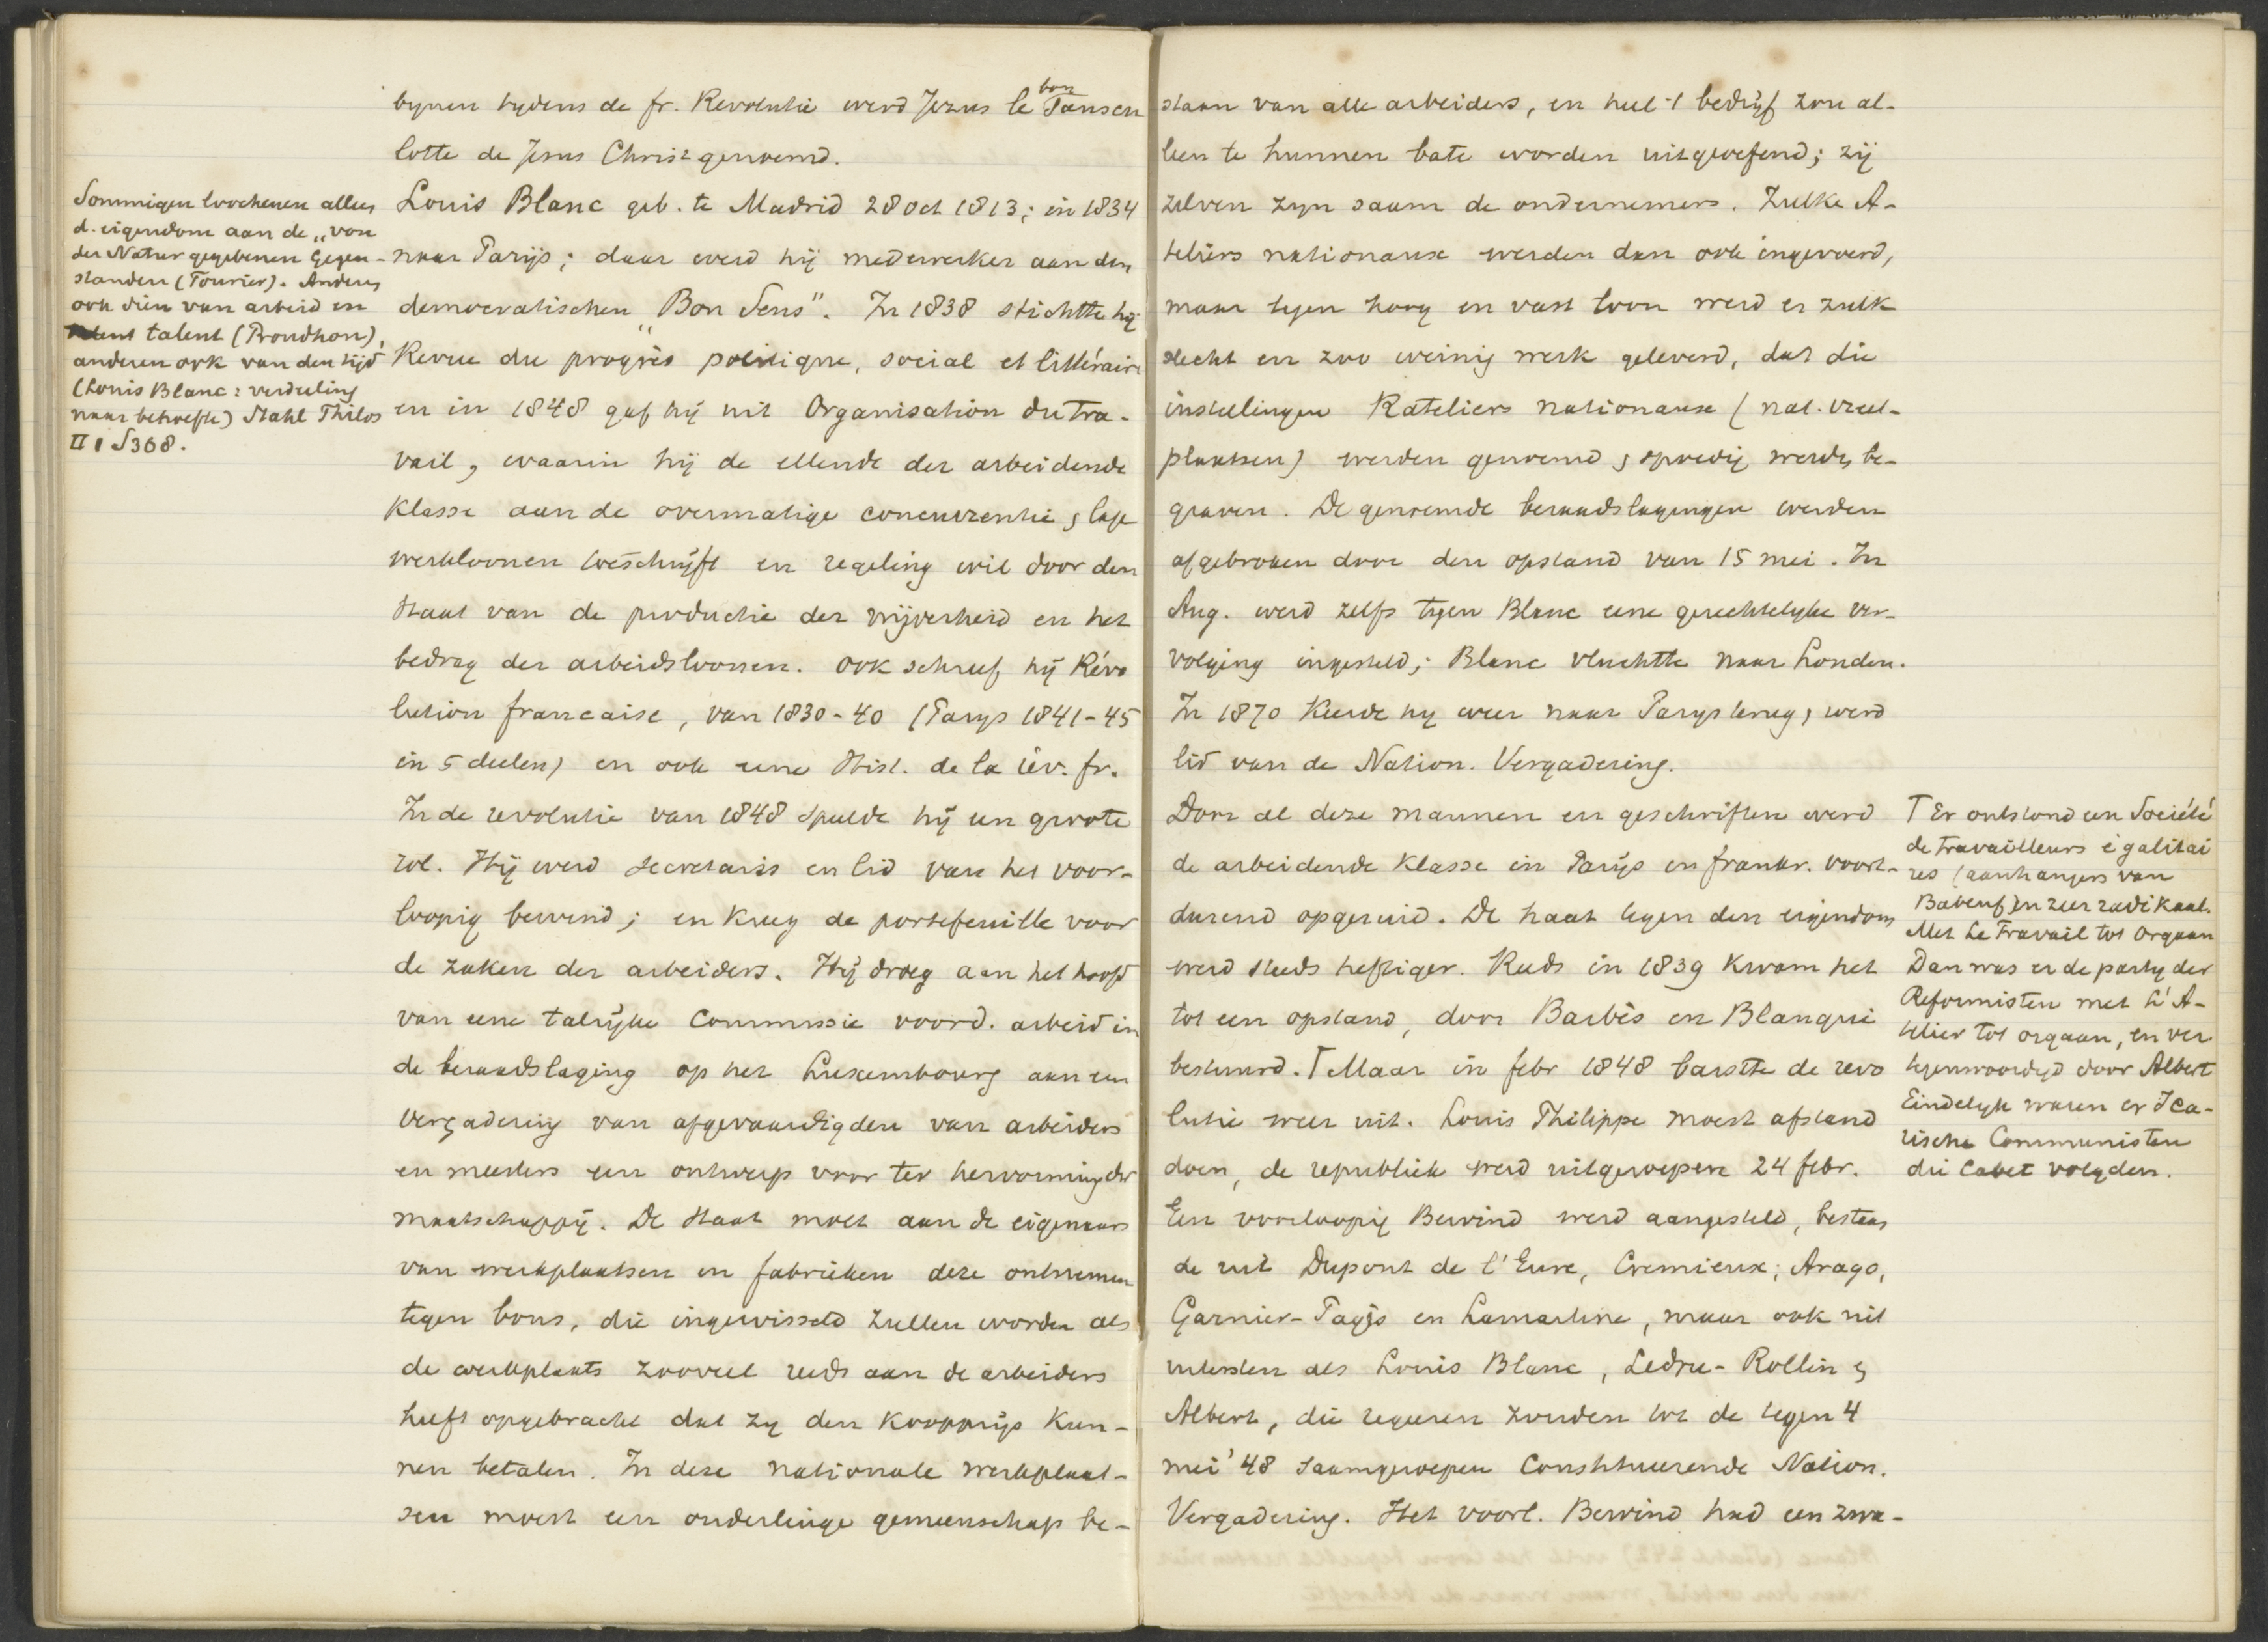 tijnen tydens de fr. Revolutie werd Jezus le bon Sanscu
lotte de Jesus Christ genoemd.
Louis Blanc geb. te Madrid 28 Oct 1813; in 1834
naar Parijs; daar werd hij medewerker aan den
democratischen „Bon Sens". In 1838 stichtte hij
Revue du progrès politique, social et littéraire
en in 1848 gaf hij uit Organisation du Tra-
vail, waarin hij de ellende der arbeidende
Klasse aan de overmatige concurrentie & lage
werkloonen toeschrijft en regeling wil door den
Staat van de productie der nijverheid en het
bedrag der arbeidsloonen. Ook schreef hij Révo
lution francaise, van 1830-40 (Parys 1841-45
in 5 deelen) en ook eene Hist. de la rév. fr.
In de revolutie van 1848 speelde hij een groote
rol. Hij werd secretaris en lid van het voor-
loopig bewind; en kreeg de portefeuille voor
de zaken der arbeiders. Hij droeg aan het hoofd
van eene talrijke Commissie voor d. arbeid in
de beraadslaging op het Luxembourg aan een
Vergadering van afgevaardigden van arbeiders
en meesters een ontwerp voor ter hervorming der
maatschappij. De Staat moet aan de eigenaars
van werkplaatsen en fabrieken deze ontnemen
tegen bons, die ingewisseld zullen worden als
de werkplaats zooveel reeds aan de arbeiders
heeft opgebracht dat zy den koopprijs kun-
nen betalen. In deze nationale werkplaat-
sen moest een onderlinge gemeenschap be-
Sommigen loochenen alleen
d. eigendom aan de „von
der Natur gegebenen Gegen-
standen (Fourier). Anderen
ook dien van arbeid en
talent (Proudhon),
anderen ook van den tijd
(Louis Blanc: verdeeling
naar behoefte) Stahl Philos
II 1 S 368.
staan van alle arbeiders, en heel 't bedrijf zou al-
leen te hunnen bate worden uitgeoefend; zij
zelven zyn saam de ondernemers. Zulke A-
teliers nationaux werden dan ook ingevoerd,
maar tegen hoog en vast loon werd er zulk
slecht en zoo weinig werk geleverd, dat die
instellingen Rateliers nationaux (nat. vreet-
plaatsen) werden genoemd & spoedig werden be-
graven. De genoemde beraadslagingen werden
afgebroken door den opstand van 15 mei. In
Aug. werd zelfs tegen Blanc eene gerechtelyke ver-
volging ingesteld; Blanc vluchtte naar Londen.
In 1870 keerde hy weer naar Parys terug, werd
lid van de Nation. Vergadering.
Door al deze mannen en geschriften werd
de arbeidende Klasse in Parijs en frankr. voort-
durend opgeruid. De haat tegen den eigendom
werd steeds heftiger. Reeds in 1839 kwam het
tot een opstand, door Barbès en Blanqui
bestuurd. ⌈ Maar in febr 1848 barstte de revo
lutie weer uit. Louis Philippe moest afstand
doen, de republiek werd uitgeroepen 24 febr.
Een voorloopig Bewind werd aangesteld, bestaan
de uit Dupont de l'Eure, Cremieux, Arago,
Garnier-Pagès en Lamartine, maar ook uit
uitersten als Louis Blanc, Ledru-Rollin &
Albert, die regeeren zouden tot de tegen 4
mei '48 saamgeroepen Constitueerende Nation.
Vergadering. Het voorl. Bewind had een zwa-
⌈ Er ontstond een Société
de Travailleurs égalitai
res (aanhangers van
Babeuf) en zeer radikaal.
Met Le Travail tot Orgaan
Dan was er de party der
Reformisten met L'A-
telier tot orgaan, en ver
tegenwoordigd door Albert
Eindelyk waren er Ica-
rische Communisten
die Cabet volgden.